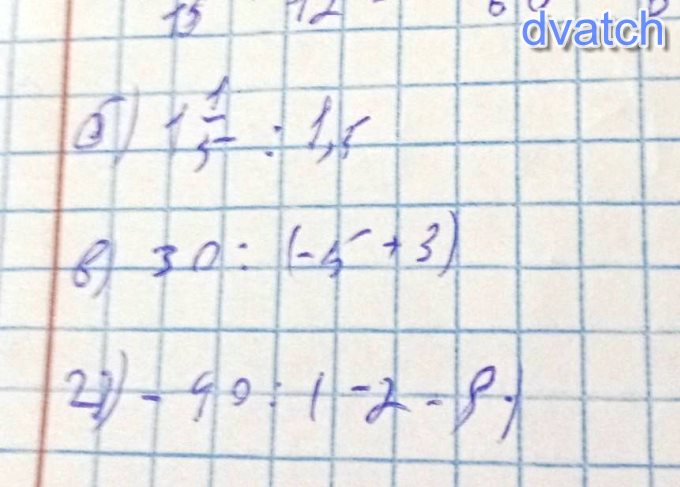 15 12
dvatch
б) 1 1/5 : 1,5
в) 30 : (-5 + 3)
г) - 90 : ( -2 - 8 )